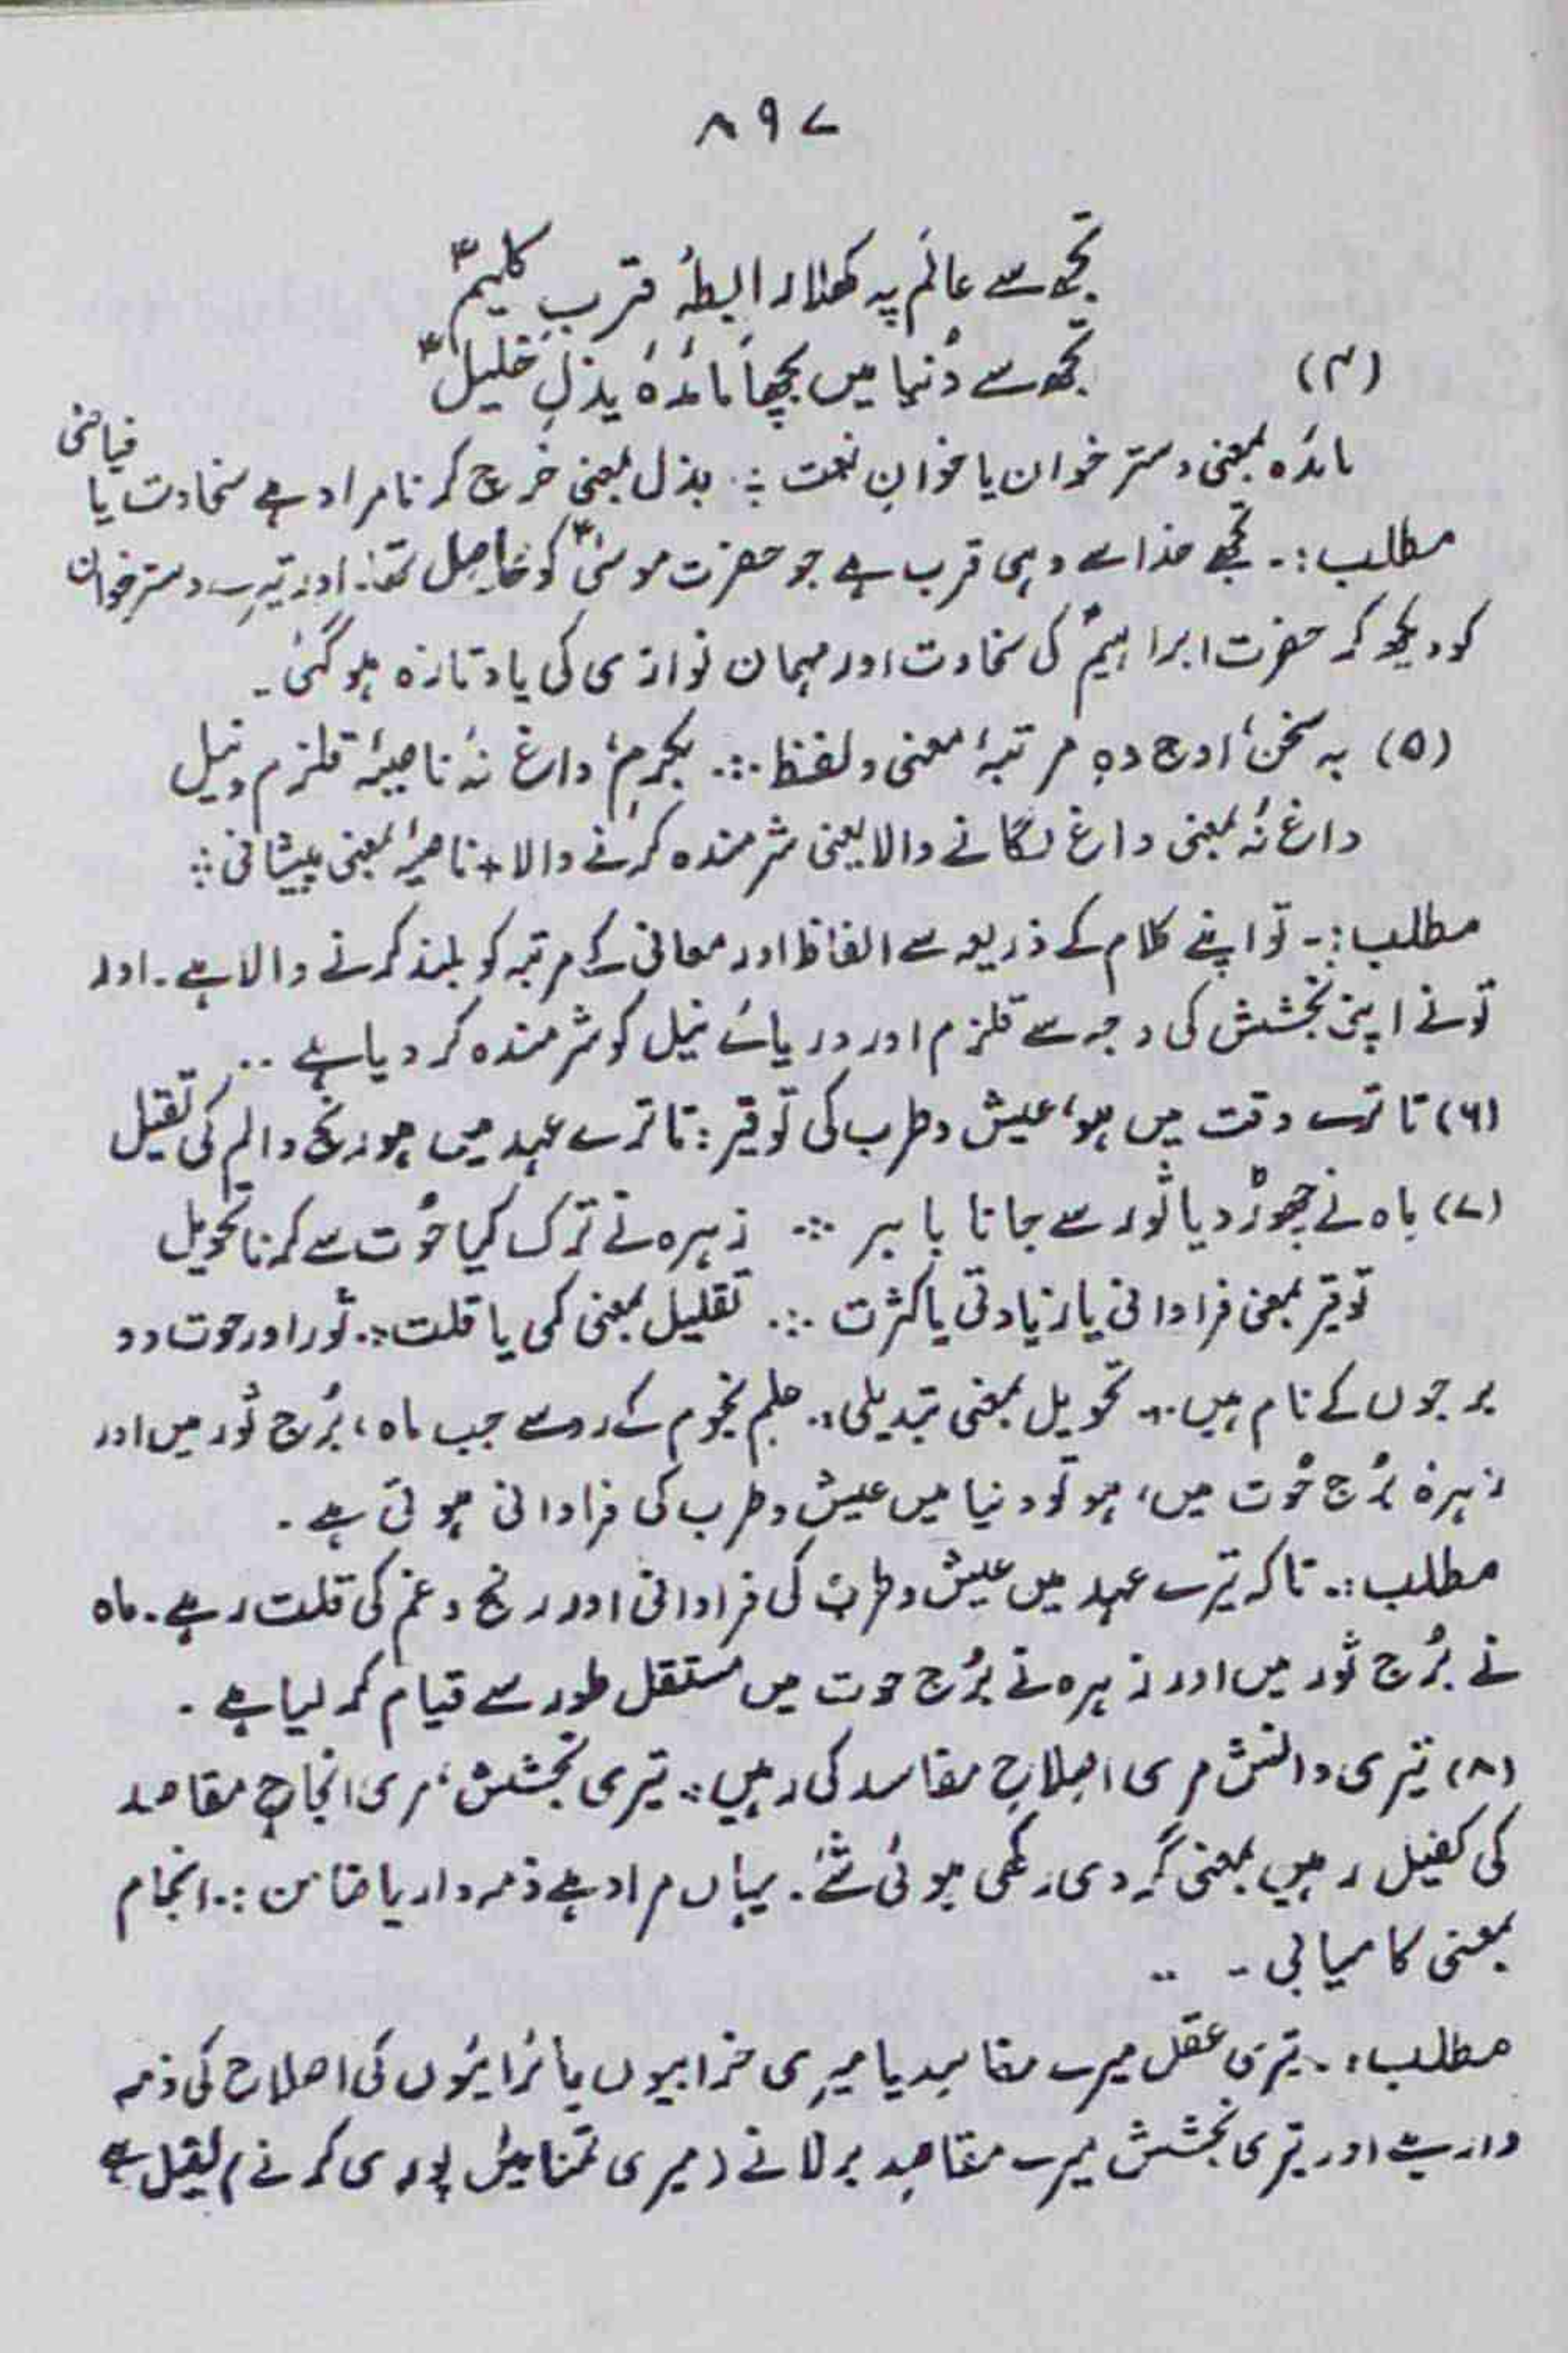 ۸۹۷
تجھ سے عالَم پہ کھلا رابطۂ قربِ کلیمؑ
(۴) تجھ سے دُنیا میں بچھا مائدۂ بذلِ خلیلؑ
مائدہ بمعنی دسترخوان یا خوانِ نعمت ؞ بذل بمعنی خرچ کرنا مراد ہے سخاوت یا فیاضی
مطلب :۔ تجھے خدا سے وہی قرب ہے جو حضرت موسیٰؑ کو حاصل تھا۔ اور تیرے دسترخوان
کو دیکھ کر حضرت ابراہیمؑ کی سخاوت اور مہمان نوازی کی یاد تازہ ہو گئی۔
(۵) بہ سخن، اوج دہِ مرتبۂ معنی و لفظ ؞ بکرم، داغ نۂ ناصیۂ قلزم و نیل
داغ نۂ بمعنی داغ لگانے والا یعنی شرمندہ کرنے والا + ناصیۂ بمعنی پیشانی ؞
مطلب :۔ تو اپنے کلام کے ذریعہ سے الفاظ اور معانی کے مرتبہ کو بلند کرنے والا ہے۔ اور
تو نے اپنی بخشش کی وجہ سے قلزم اور دریائے نیل کو شرمندہ کر دیا ہے ..
(۶) تا ترے وقت میں ہو، عیش و طرب کی توقیر ؞ تا ترے عہد میں ہو رنج و الم کی تقلیل
(۷) ماہ نے چھوڑ دیا ثَور سے جانا باہر ؞ زہرہ نے ترک کیا حُوت سے کرنا تحویل
توقیر بمعنی فراوانی یا زیادتی یا کثرت ؞ تقلیل بمعنی کمی یا قلت ؞ ثَور اور حوت دو
برجوں کے نام ہیں ؞ تحویل بمعنی تبدیلی ؞ علم نجوم کے رو سے جب ماہ، بُرج ثور میں اور
زہرہ بُرج حُوت میں، ہو تو دنیا میں عیش و طرب کی فراوانی ہوتی ہے۔
مطلب :۔ تاکہ تیرے عہد میں عیش و طرب کی فراوانی اور رنج و غم کی قلت رہے۔ ماہ
نے بُرج ثَور میں اور زہرہ نے بُرج حوت میں مستقل طور سے قیام کر لیا ہے۔
(۸) تیری دانش مری اصلاحِ مفاسد کی رہیں ؞ تیری بخشش، مری انجاحِ مقاصد
کی کفیل رہیں بمعنی گروی رکھی ہوئی شئے۔ یہاں مراد ہے ذمہ دار یا ضامن ؞ انجام
بمعنی کامیابی - ..
مطلب :۔ تیری عقل میرے مفاسد یا میری خرابیوں یا بُرائیوں کی اصلاح کی ذمہ
دار ہے اور تیری بخشش میرے مقاصد بر لانے (میری تمنائیں پوری کرنے) کفیل ہے